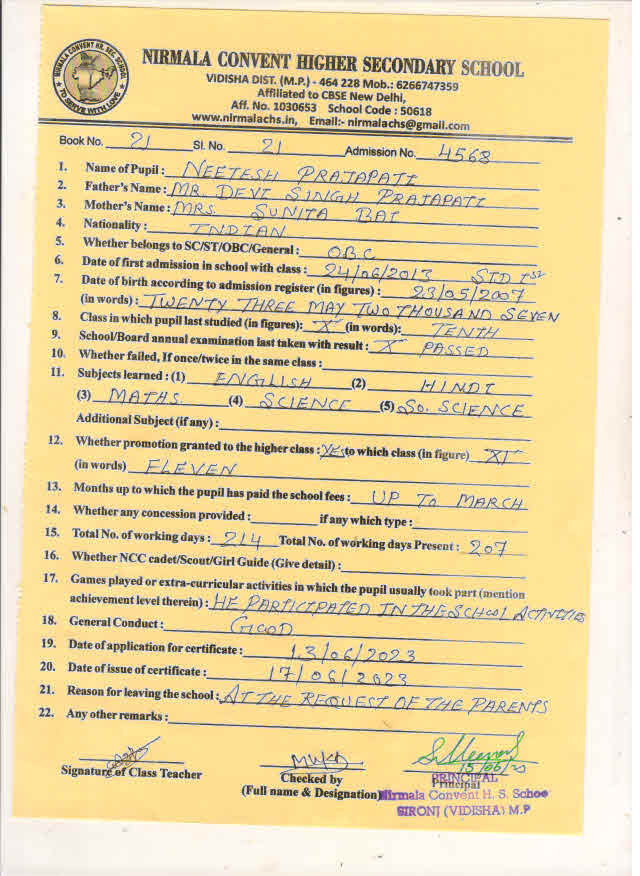 NIRMALA CONVENT HR. SEC. SCHOOL
TO SERVE WITH LOVE
NIRMALA CONVENT HIGHER SECONDARY SCHOOL
VIDISHA DIST. (M.P.) - 464 228 Mob.: 6266747359
Affiliated to CBSE New Delhi,
Aff. No. 1030653 School Code : 50618
www.nirmalachs.in, Email:- nirmalachs@gmail.com
Book No. 21 Sl. No. 21 Admission No. 4568
1. Name of Pupil : NEETESH PRAJAPATI
2. Father's Name : MR. DEVI SINGH PRAJAPATI
3. Mother's Name : MRS. SUNITA BAI
4. Nationality : INDIAN
5. Whether belongs to SC/ST/OBC/General : OBC
6. Date of first admission in school with class : 24/06/2013 STD Ist
7. Date of birth according to admission register (in figures) : 23/05/2007
(in words) : TWENTY THREE MAY TWO THOUSAND SEVEN
8. Class in which pupil last studied (in figures): X (in words): TENTH
9. School/Board annual examination last taken with result : X PASSED
10. Whether failed, If once/twice in the same class :
11. Subjects learned : (1) ENGLISH (2) HINDI
(3) MATHS. (4) SCIENCE (5) SO. SCIENCE
Additional Subject (if any) :
12. Whether promotion granted to the higher class : YES to which class (in figure) XI
(in words) ELEVEN
13. Months up to which the pupil has paid the school fees : UP TO MARCH
14. Whether any concession provided : if any which type :
15. Total No. of working days : 214 Total No. of working days Present : 207
16. Whether NCC cadet/Scout/Girl Guide (Give detail) :
17. Games played or extra-curricular activities in which the pupil usually took part (mention
achievement level therein) : HE PARTICIPATED IN THE SCHOOL ACTIVITIES
18. General Conduct : GOOD
19. Date of application for certificate : 13/06/2023
20. Date of issue of certificate : 17/06/2023
21. Reason for leaving the school : AT THE REQUEST OF THE PARENTS
22. Any other remarks :
Signature of Class Teacher Checked by Principal
(Full name & Designation)
PRINCIPAL
Nirmala Convent H. S. Schoo
SIRONJ (VIDISHA) M.P